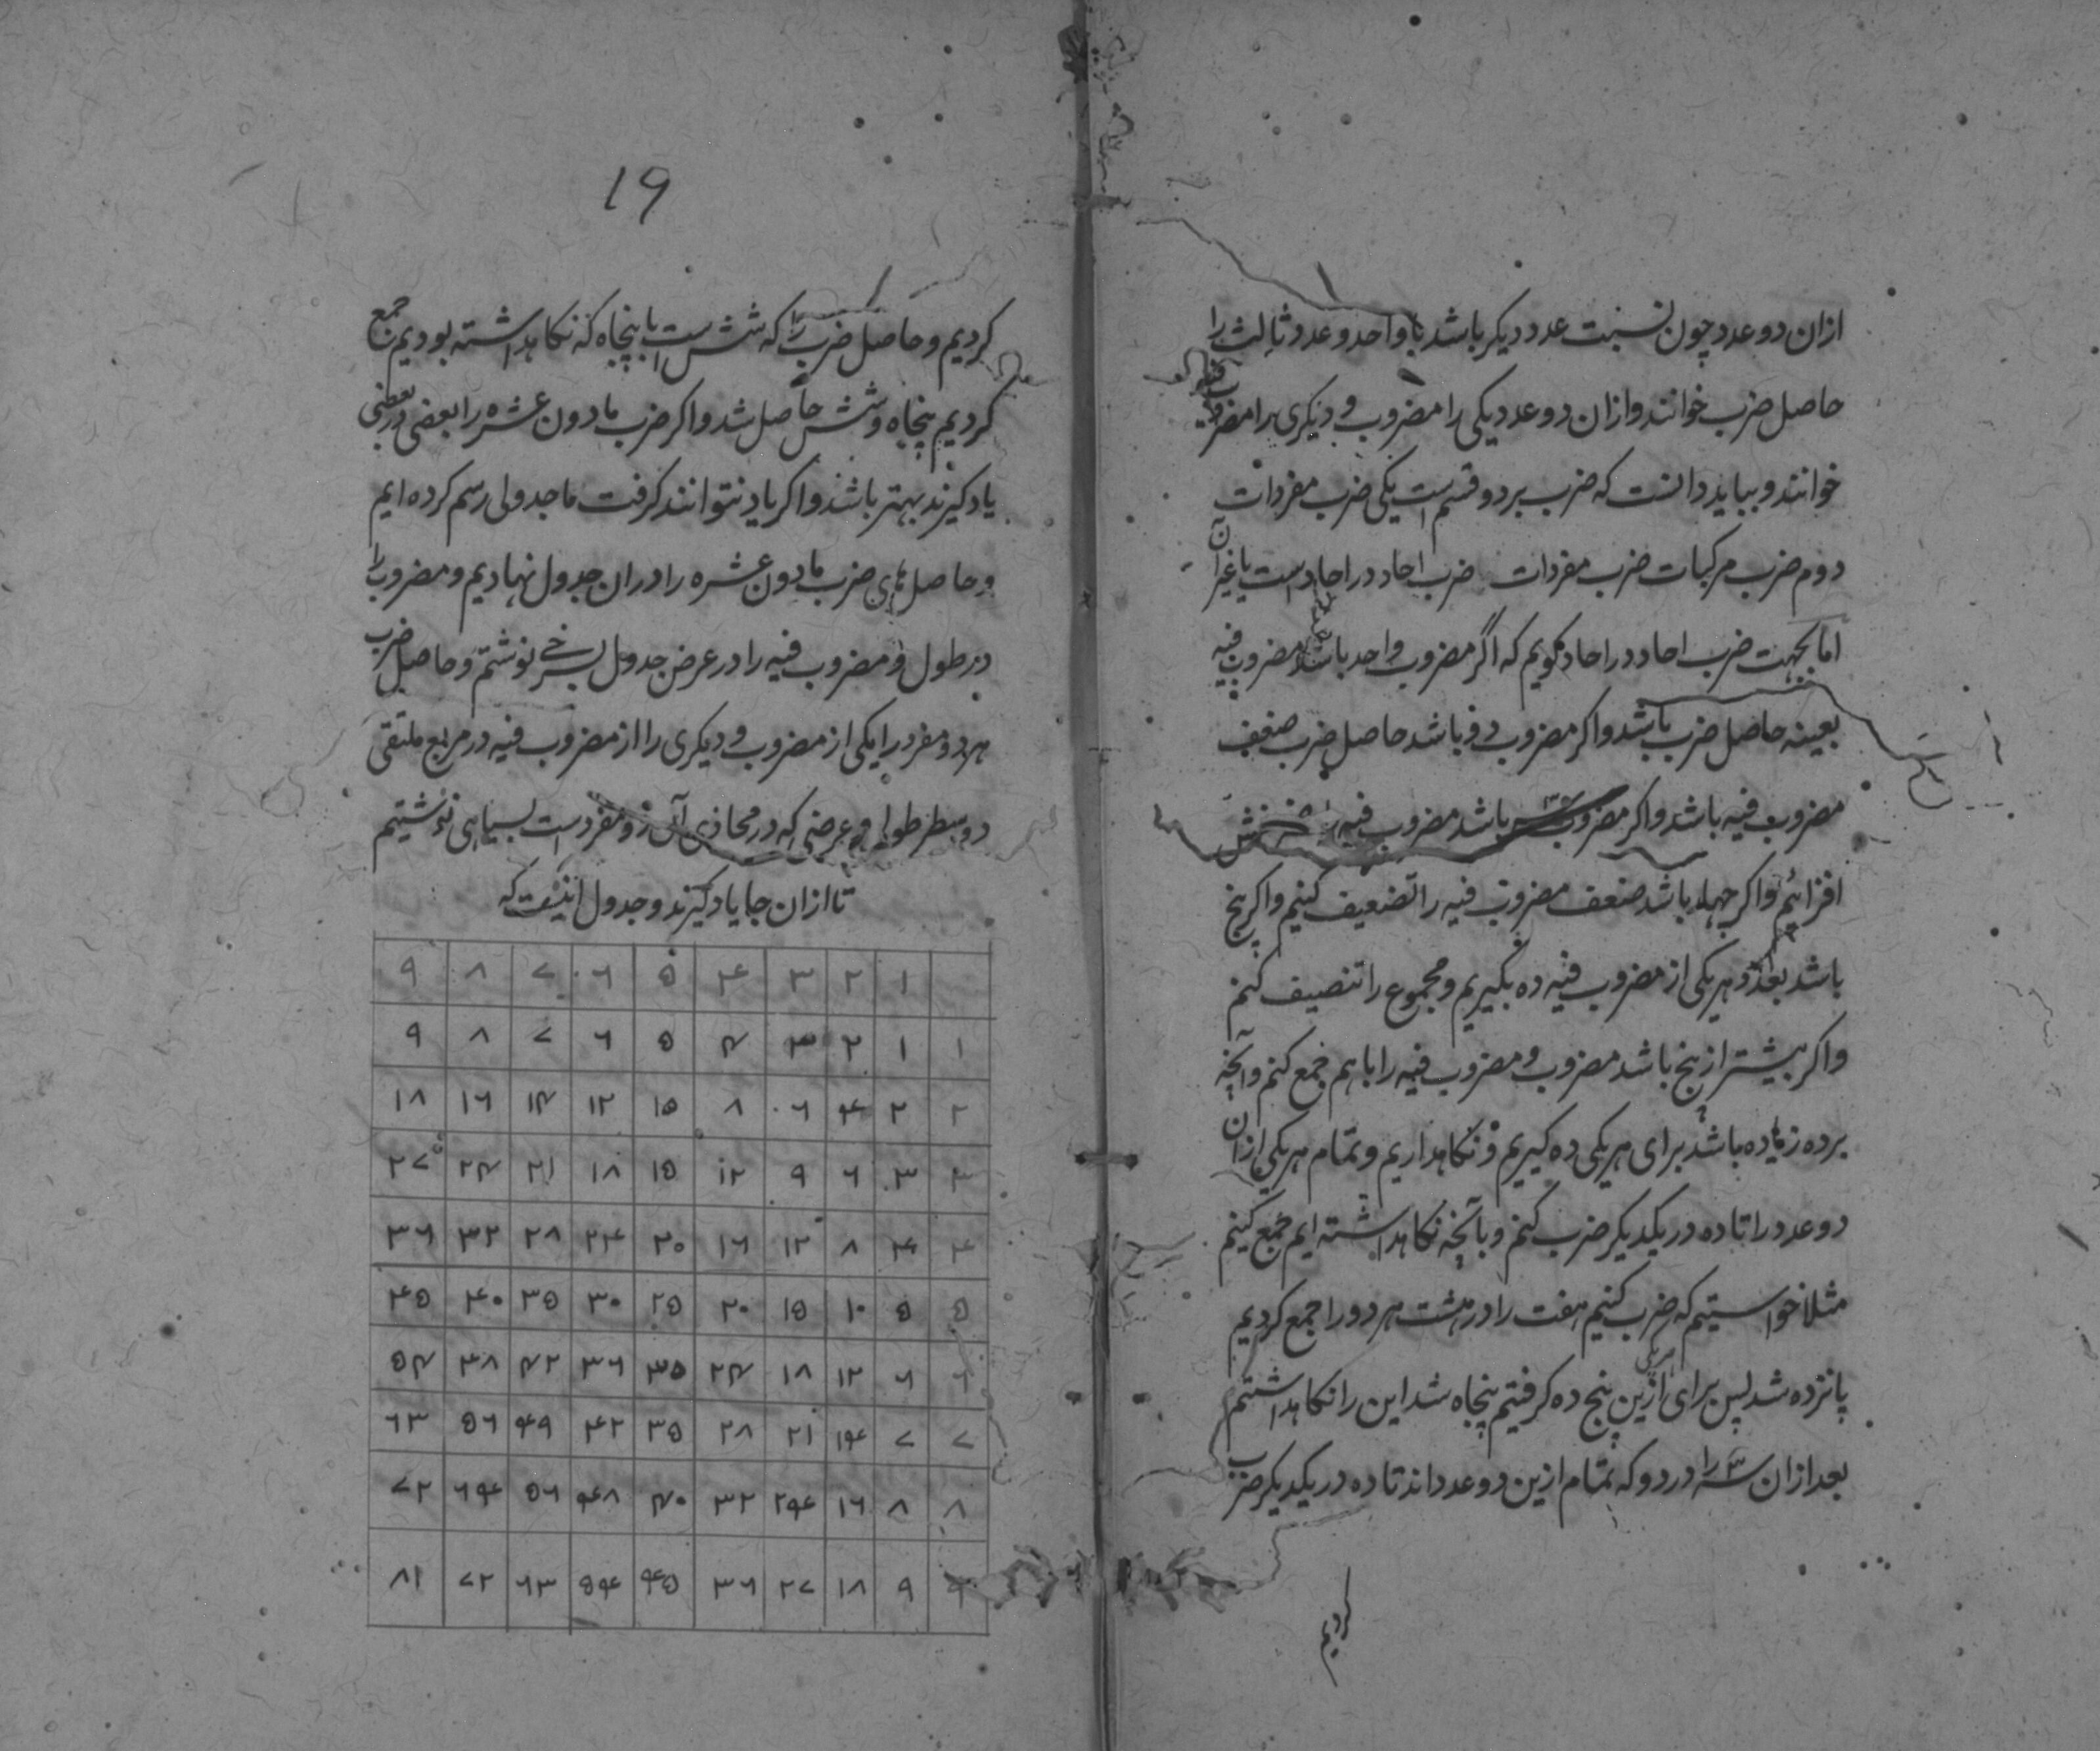 ازان دو عدد چون نسبت عدد دیکر باشد با واحد و عدد ثالث را
حاصل ضرب خوانند و ازان دو عدد یکی را مضروب و دیکری را مضروب فیه
خوانند و بباید دانست که ضرب بر دو قسم است یکی ضرب مفردات
دوم ضرب مرکبات ضرب مفردات ضرب احاد در احاد است یا غیر آن
اما بجهت ضرب احاد در احاد کویم که اگر مضروب واحد باشد مضروب فیه
بعینه حاصل ضرب باشد و اکر مضروب دو باشد حاصل ضرب ضعف
مضروب فیه باشد و اکر مضروب سه باشد مضروب فیه را بر ضعفش
افزائیم و اکر چهار باشد ضعف مضروب فیه را تضعیف کنیم و اکر پنج
باشد بعدد هر یکی از مضروب فیه ده بکیریم و مجموع را تنصیف کنم
و اکر بیشتر از پنج باشد مضروب و مضروب فیه را باهم جمع کنم و آنچه
بر ده زیاده باشد برای هر یکی ده کیریم و نکاهداریم و تمام هر یکی ازان
دو عدد را تا ده در یکدیکر ضرب کنم و بآنچه نکاهداشته ایم جمع کنیم
مثلا خواستیم که ضرب کنیم هفت را در هشت هر دو را جمع کردیم
پانزده شد پس برای هر یکی ازین پنج ده کرفتیم پنجاه شد این را نکاهداشتم
بعد ازان سه را در دو که تمام ازین دو عدد اند تا ده در یکدیکر ضرب
کردیم
19
کردیم و حاصل ضرب را که شش است با پنجاه که نکاهداشته بودیم جمع
کردیم پنجاه و شش حاصل شد و اکر ضرب مادون عشره را بعضی در بعضی
یاد کیرند بهتر باشد و اکر یاد نتوانند کرفت ما جدولی رسم کرده ایم
و حاصل های ضرب مادون عشره را دران جدول نهادیم و مضروب را
در طول و مضروب فیه را در عرض جدول بسرخی نوشتم و حاصل ضرب
هر دو مفرد را یکی از مضروب و دیکری را از مضروب فیه در مربع ملتقی
دو سطر طولی و عرضی که در محاذی آن دو مفرد است بسیاهی نوشتیم
تا ازان جا یاد کیرند و جدول اینست که
۱ ۲ ۳ ۴ ۵ ۶ ۷ ۸ ۹
۱ ۱ ۲ ۳ ۴ ۵ ۶ ۷ ۸ ۹
۲ ۲ ۴ ۶ ۸ ۱۵ ۱۲ ۱۴ ۱۶ ۱۸
۳ ۳ ۶ ۹ ۱۲ ۱۵ ۱۸ ۲۱ ۲۴ ۲۷
۴ ۴ ۸ ۱۲ ۱۶ ۲۰ ۲۴ ۲۸ ۳۲ ۳۶
۵ ۵ ۱۰ ۱۵ ۲۰ ۲۵ ۳۰ ۳۵ ۴۰ ۴۵
۶ ۶ ۱۲ ۱۸ ۲۴ ۳۵ ۳۶ ۴۲ ۴۸ ۵۴
۷ ۷ ۱۴ ۲۱ ۲۸ ۳۵ ۴۲ ۴۹ ۵۶ ۶۳
۸ ۸ ۱۶ ۲۴ ۳۲ ۴۰ ۴۸ ۵۶ ۶۴ ۷۲
۹ ۹ ۱۸ ۲۷ ۳۶ ۴۵ ۵۴ ۶۳ ۷۲ ۸۱